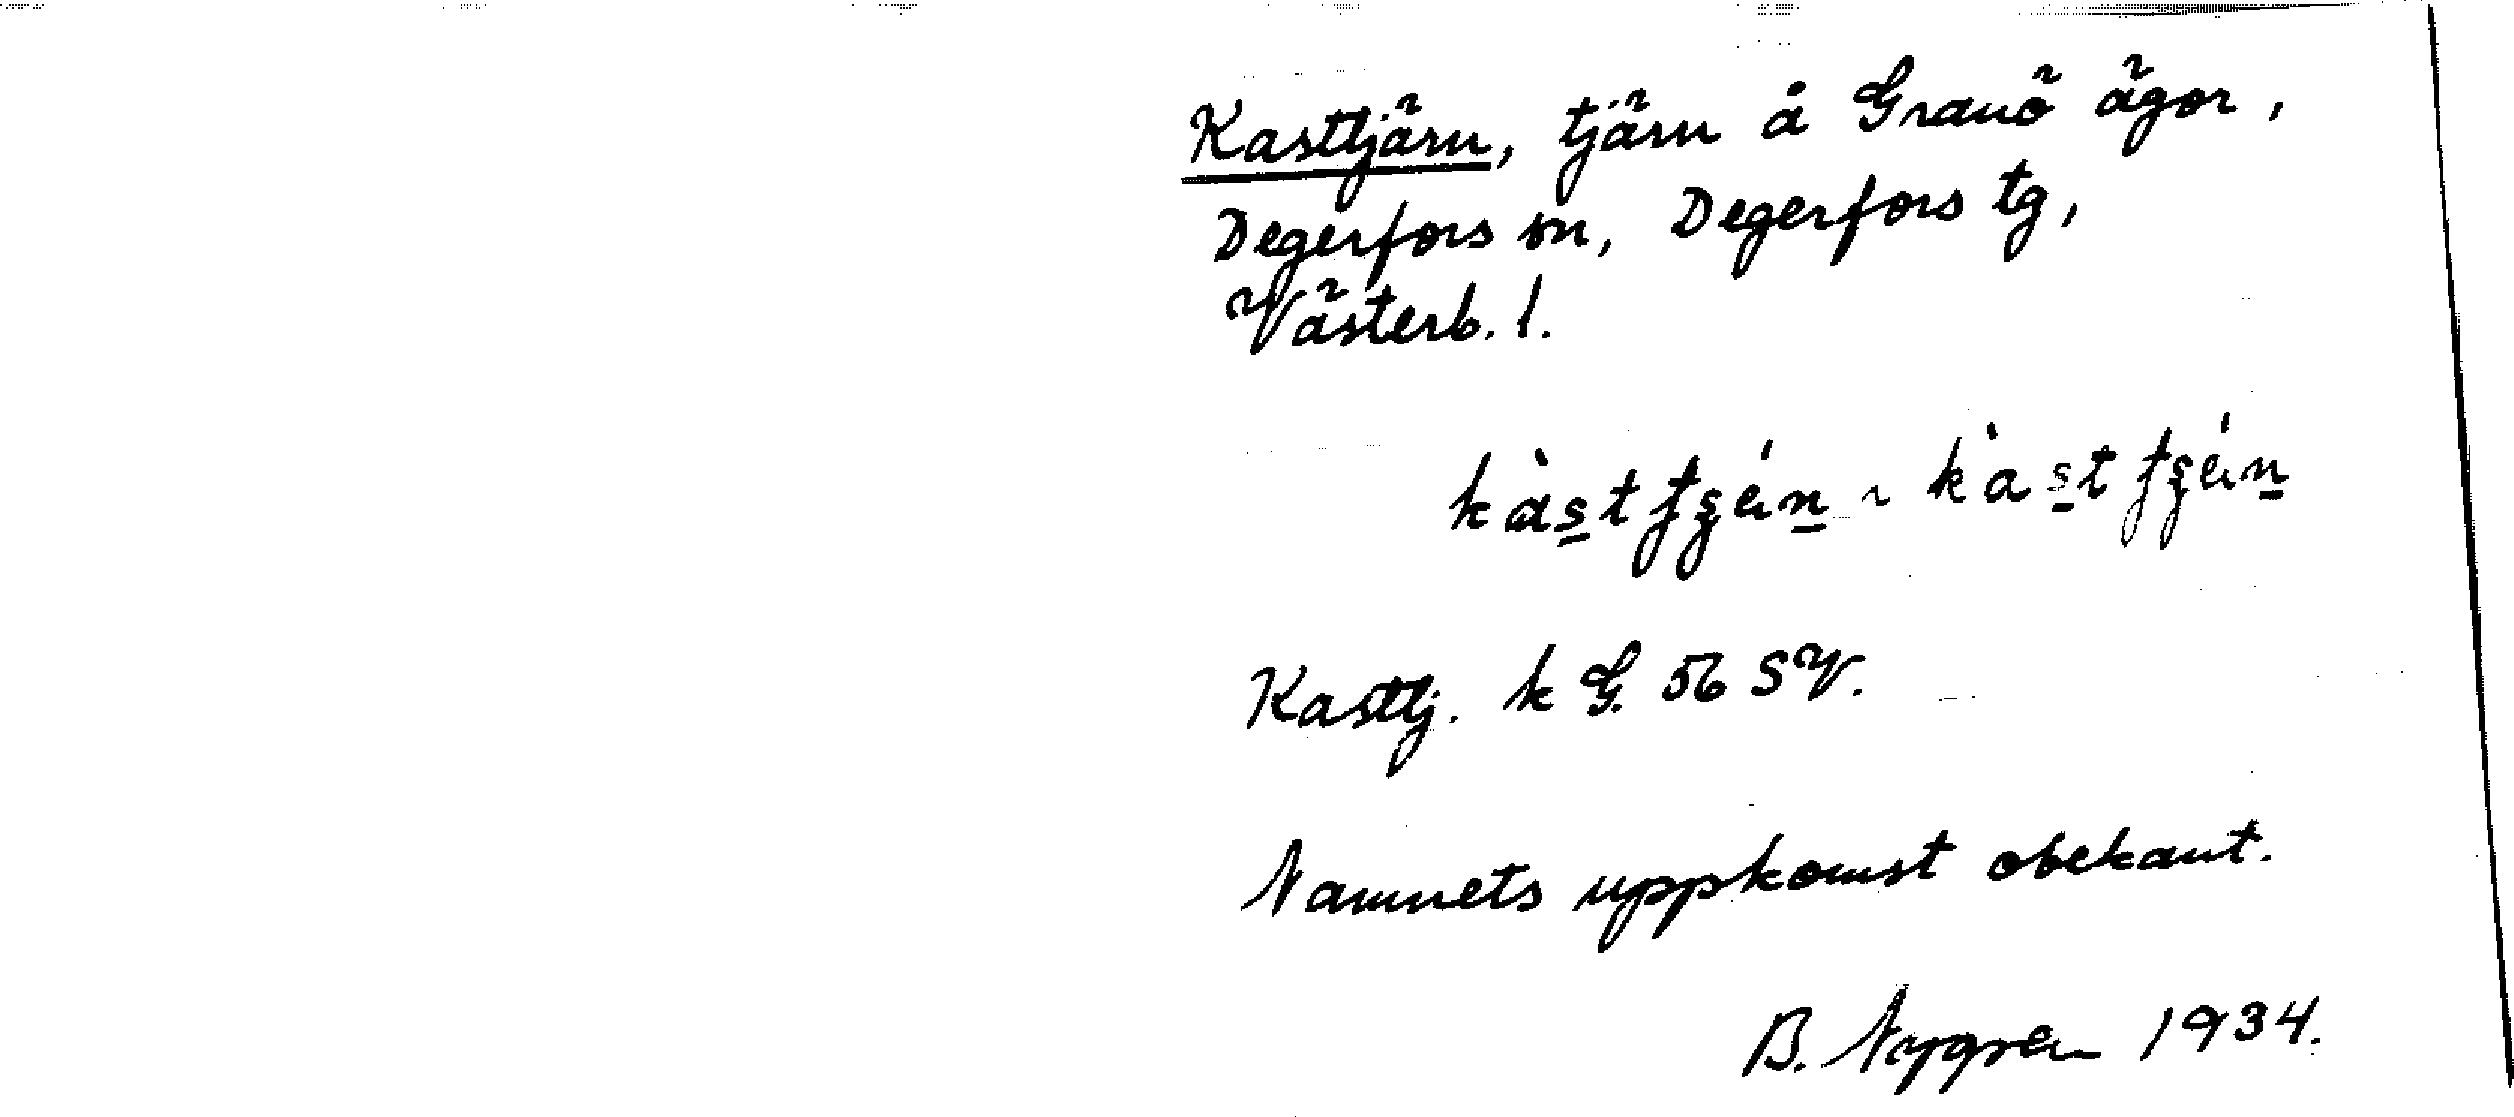 Kasttjärn, tjärn å Granö ägor,
Degerfors sn, Degerfors tg,
Västerb. l.
Kasttj. k G. 56 SV.
Namnets uppkomst obekant.
B. Nygren 1934.